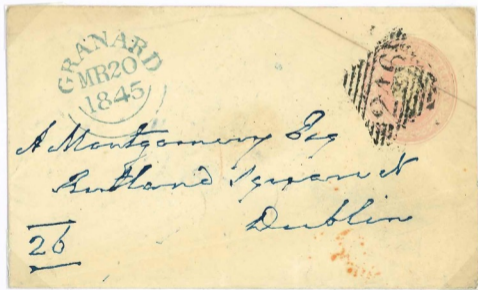 GRANARD
MR20
1845
A Montgomery Esq
Rutland Square N
Dublin
26